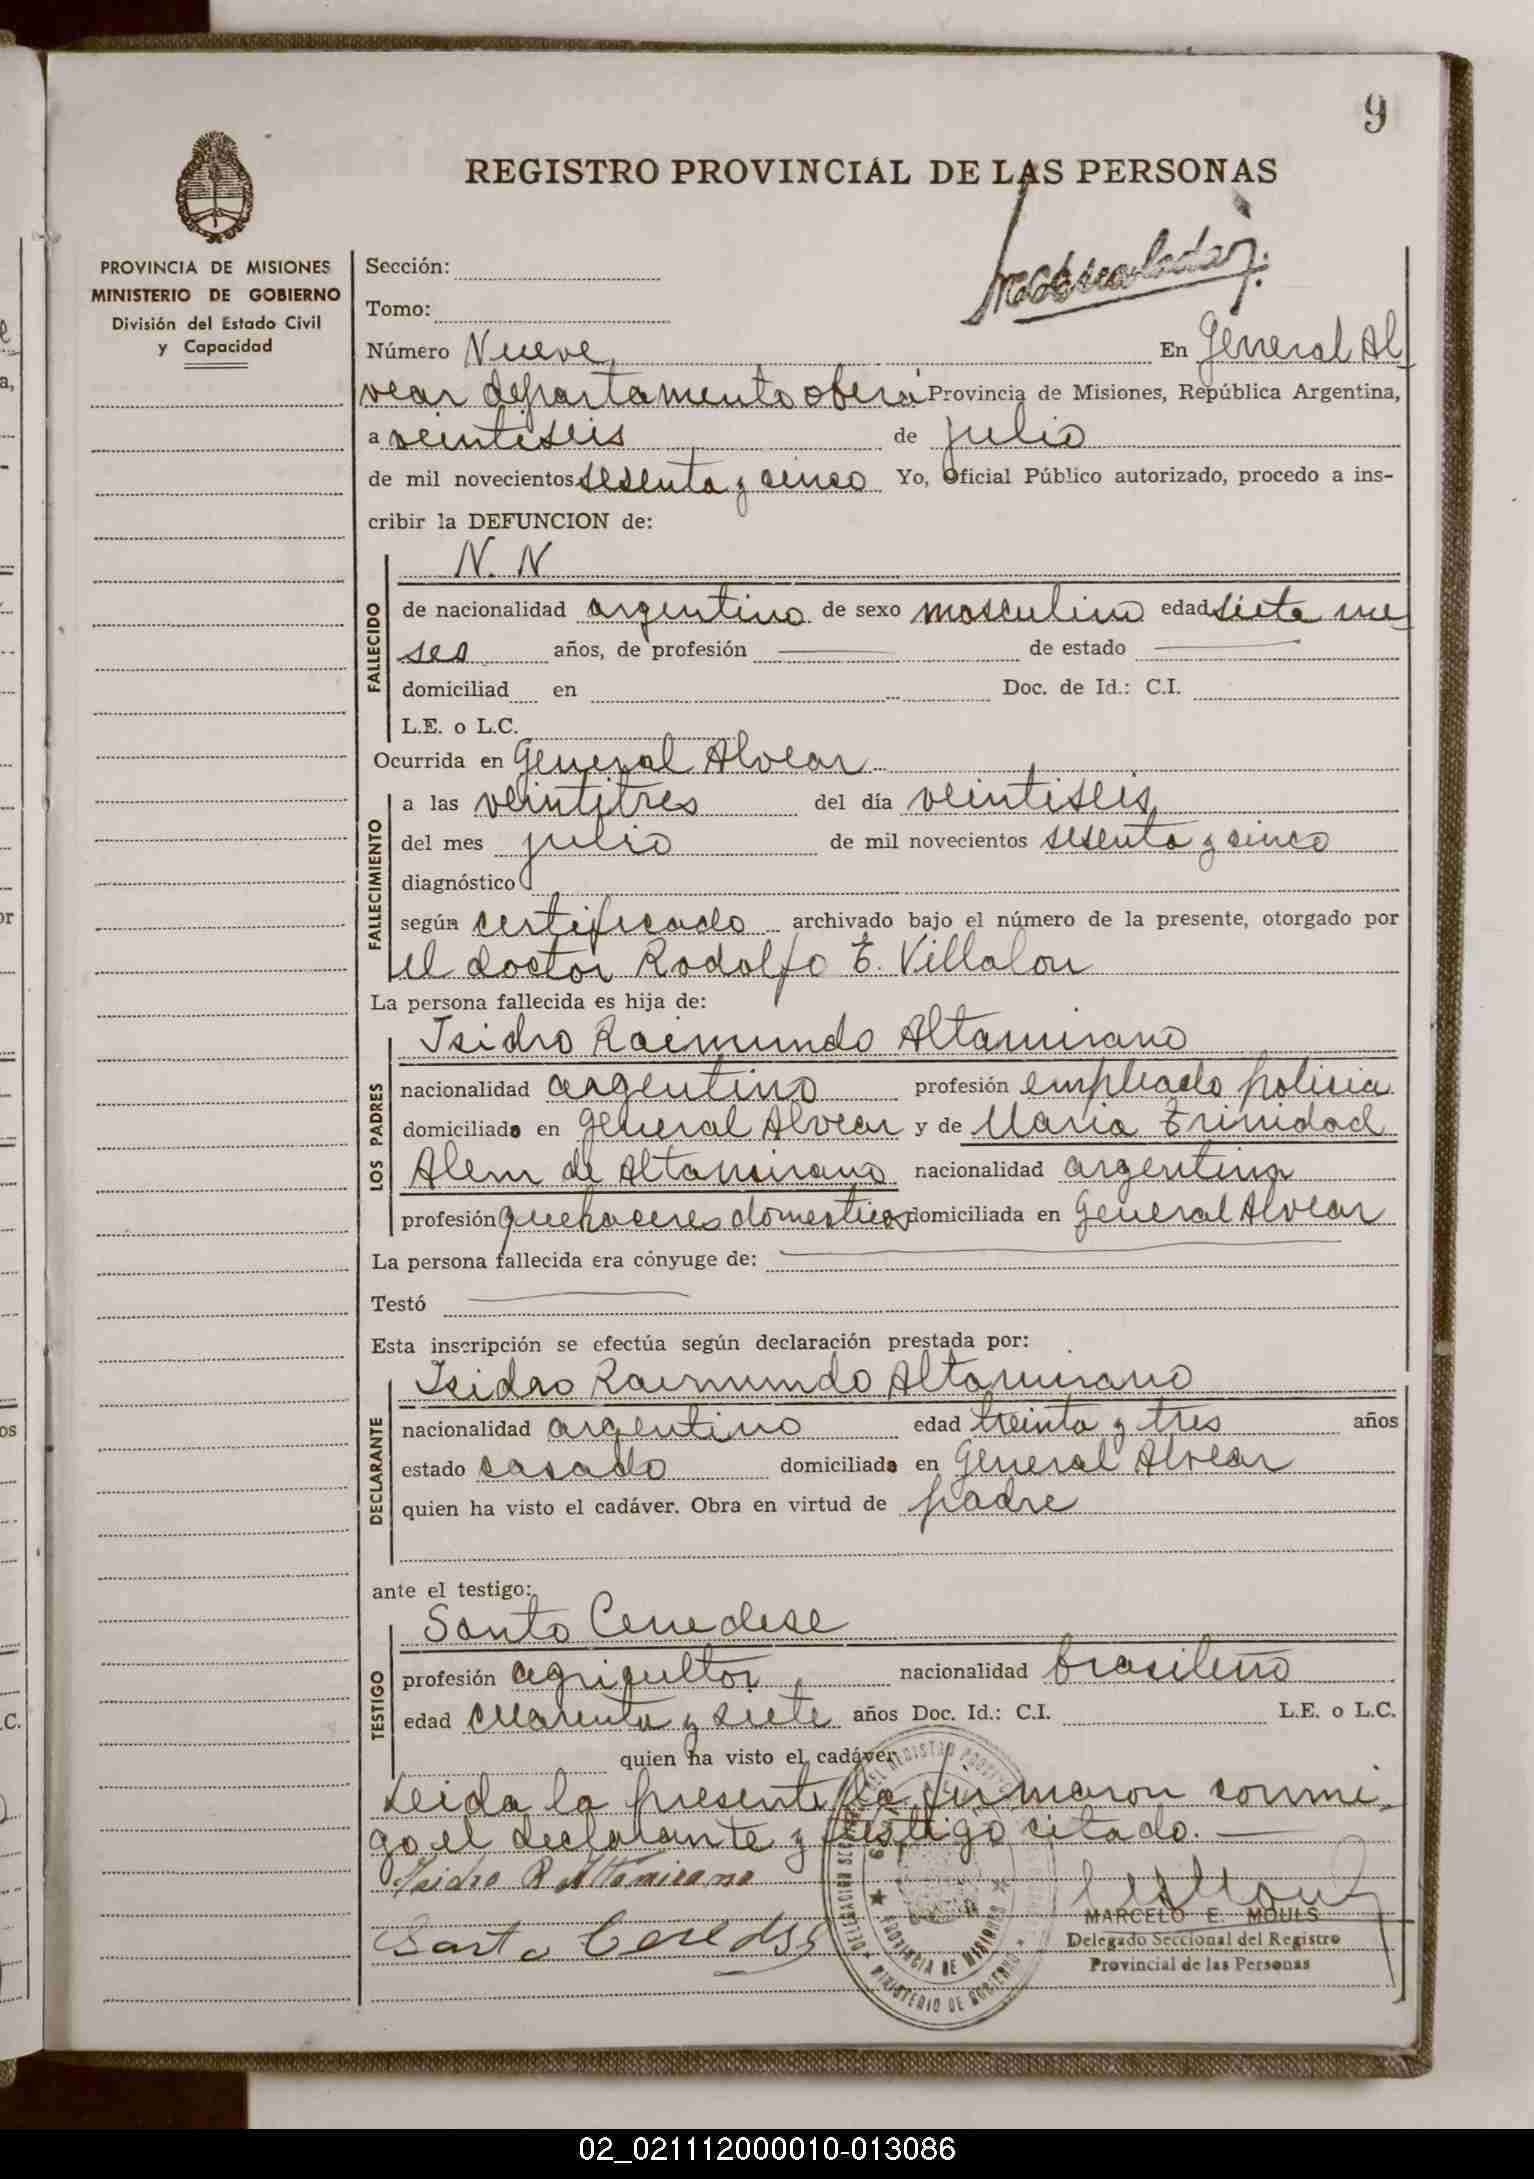 9
REGISTRO PROVINCIAL DE LAS PERSONAS
PROVINCIA DE MISIONES
MINISTERIO DE GOBIERNO
División del Estado Civil
y Capacidad
Sección:
Tomo:
Número Nueve En General Al-
vear departamento oberá Provincia de Misiones, República Argentina,
a veintiseis de julio
de mil novecientos sesenta y cinco Yo, Oficial Público autorizado, procedo a ins-
cribir la DEFUNCION de:
N. N
FALLECIDO
de nacionalidad argentino de sexo masculino edad siete me-
ses años, de profesión de estado
domiciliad en Doc. de Id.: C.I.
L.E. o L.C.
Ocurrida en General Alvear
FALLECIMIENTO
a las veintitres del día veintiseis
del mes julio de mil novecientos sesenta y cinco
diagnóstico
según certificado archivado bajo el número de la presente, otorgado por
el doctor Rodolfo E. Villalon
La persona fallecida es hija de:
LOS PADRES
Isidro Raimundo Altamirano
nacionalidad argentino profesión empleado policia
domiciliado en General Alvear y de Maria Trinidad
Alem de Altamirano nacionalidad argentina
profesión quehaceres domesticos domiciliada en General Alvear
La persona fallecida era cónyuge de:
Testó
Esta inscripción se efectúa según declaración prestada por:
DECLARANTE
Isidro Raimundo Altamirano
nacionalidad argentino edad treinta y tres años
estado casado domiciliado en General Alvear
quien ha visto el cadáver. Obra en virtud de padre
ante el testigo:
TESTIGO
Santo Cenedese
profesión agricultor nacionalidad brasileño
edad cuarenta y siete años Doc. Id.: C.I. L.E. o L.C.
quien ha visto el cadáver
Leida la presente la firmaron conmi-
go el declarante y testigo citado.
Isidro R Altamirano
Santo Cenedese
MARCELO E. MOULS
Delegado Seccional del Registro
Provincial de las Personas
PROVINCIA DE MISIONES
MINISTERIO DE GOBIERNO
02_021112000010-013086